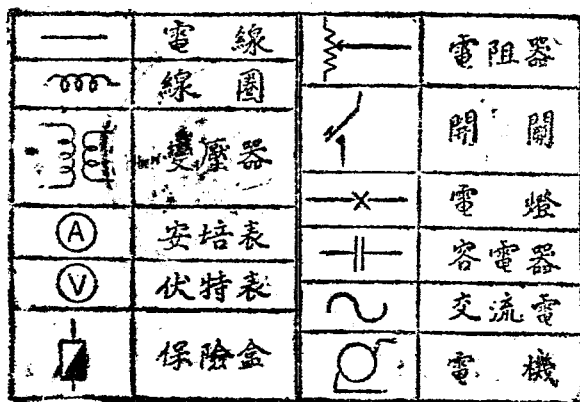 電線
線圈
變壓器
A
安培表
V
伏特表
保險盒
電阻器
開關
電燈
容電器
交流電
電機